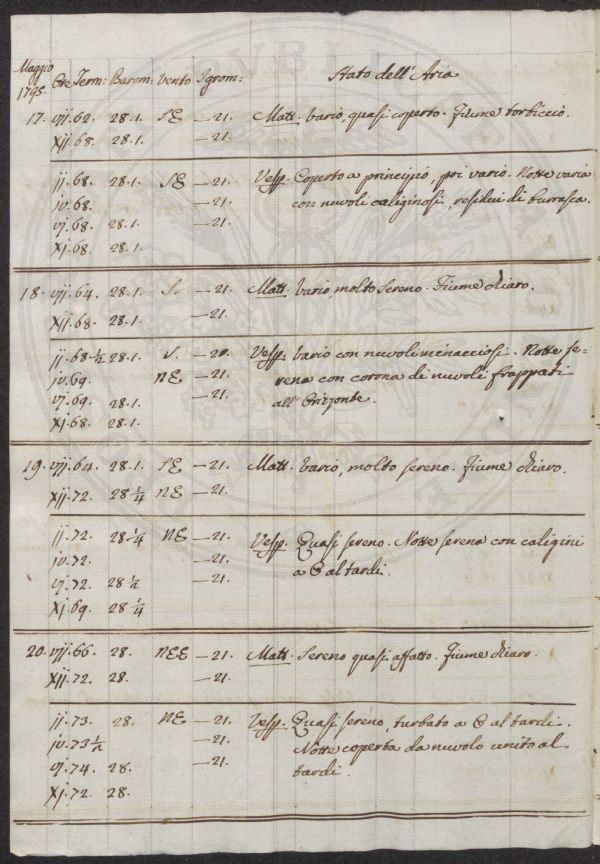 Maggio
1795. Ore Term: Barom: Vento Igrom: Stato dell'Aria
17. vij. 62. 28.1. SE —21. Matt. Vario, quasi coperto. Fiume torbiccio.
xij. 68. 28.1. —21.
ij. 68. 28.1. SE —21. Vesp. Coperto a principio, poi vario. Notte varia
iv. 68. —21. con nuvoli caliginosi, residui di burrasca.
vj. 68. 28.1. —21.
xj. 68. 28.1.
18. vij. 64. 28.1. S. —21. Matt. Vario, molto sereno. Fiume chiaro.
xij. 68. 28.1. —21.
ij. 68.½ 28.1. S. —20. Vesp. Vario con nuvoli minacciosi. Notte se-
iv. 69. NE —21. rena con corona di nuvoli frappati
vj. 69. 28.1. —21. all'Orizzonte.
xj. 68. 28.1.
19. vij. 64. 28.1. SE —21. Matt. Vario, molto sereno. Fiume chiaro.
xij. 72. 28 ¼ NE —21.
ij. 72. 28 ¼ NE —21. Vesp. Quasi sereno. Notte serena con caligini
iv. 72. —21. a O al tardi.
vj. 72. 28 ½ —21.
xj. 69. 28 ¼
20. vij. 66. 28. NEE —21. Matt. Sereno quasi affatto. Fiume chiaro.
xij. 72. 28. —21.
ij. 73. 28. NE —21. Vesp. Quasi sereno, turbato a O al tardi.
iv. 73½ —21. Notte coperta da nuvolo unito al
vj. 74. 28. —21. tardi.
xj. 72. 28.